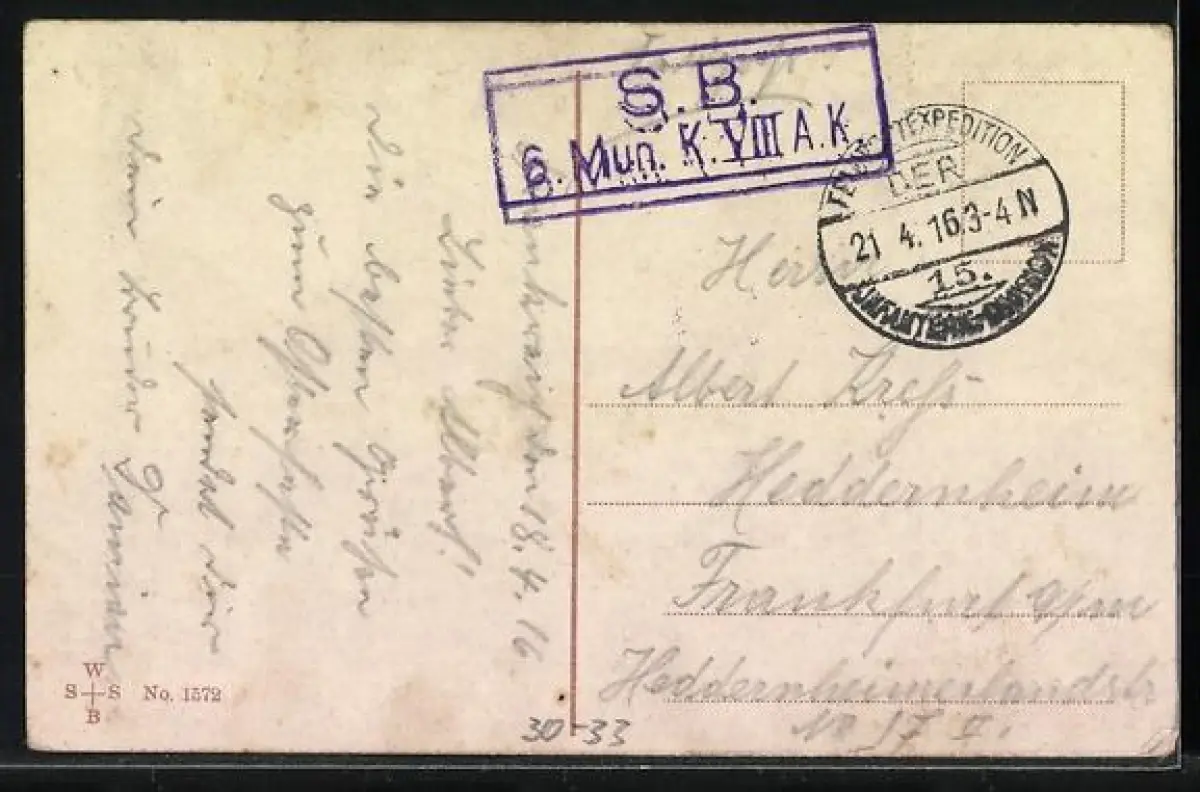 den 18.4.16
Lieber Albert!
Die besten Grüßen
zum Osterfeste
sendet dir
dein Bruder
W
S S
B
No. 1572
S. B.
6. Mun. K. VIII A. K.
DER
21 4.16 3-4 N
15.
INFANTERIE-DIVISION
Herrn
Albert Kreß
Heddernheim
Frankfurt a/m
Heddernheimerlandstr
30-33